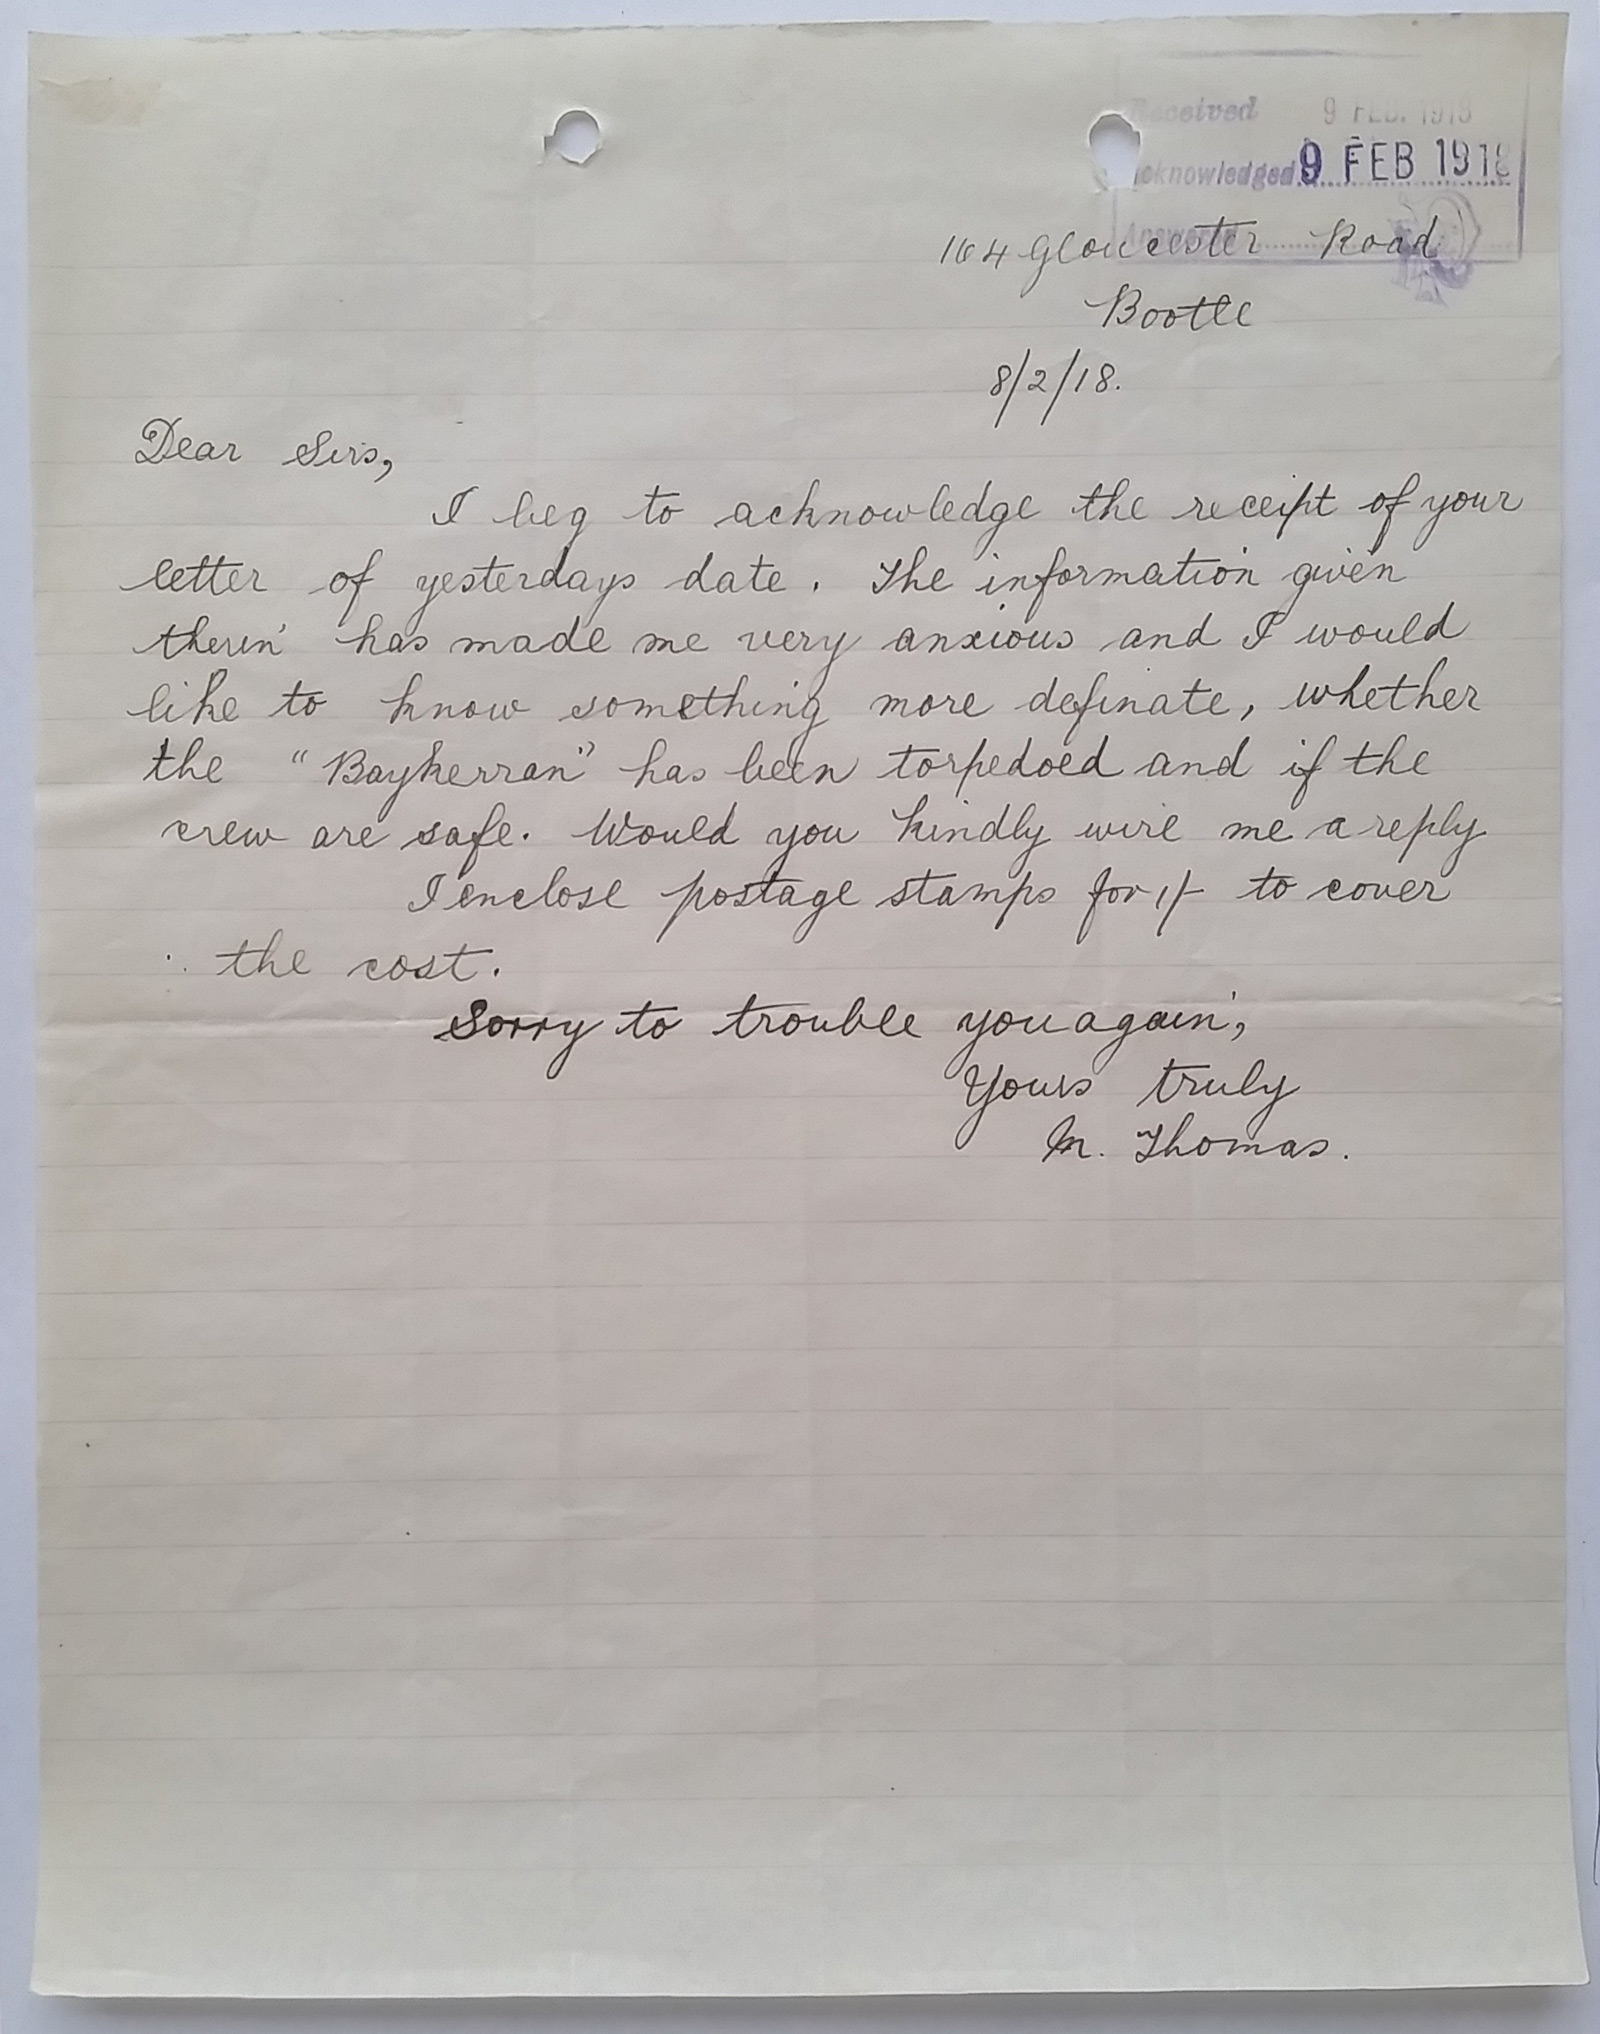 Received 9 FEB. 1918
Acknowledged 9 FEB 1918
Answered
164 Gloucester Road
Bootle
8/2/18.
Dear Sirs,
I beg to acknowledge the receipt of your
letter of yesterdays date. The information given
therin has made me very anxious and I would
like to know something more definate, whether
the "Baykerran" has been torpedoed and if the
crew are safe. Would you kindly wire me a reply
I enclose postage stamps for 1/- to cover
the cost.
Sorry to trouble you again,
Yours truly
M. Thomas.